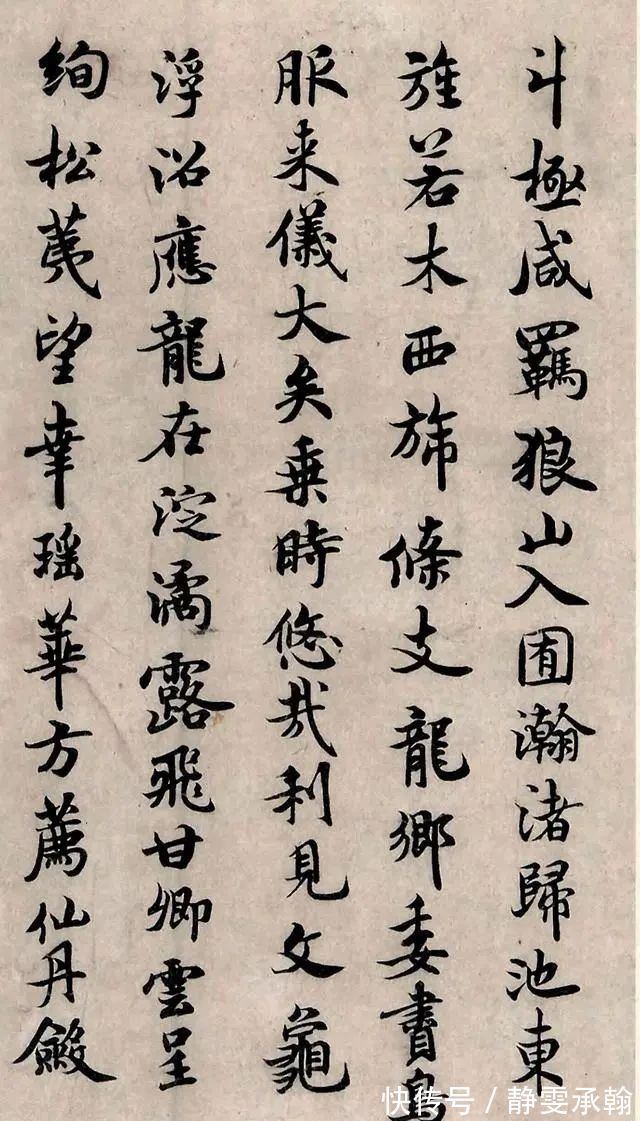 斗極咸羈狼山入囿瀚渚歸池東
旌若木西旆條支龍鄉委賮鳥
服来儀大矣乗時悠哉利見文龜
浮沼應龍在淀潏露飛甘卿雲呈
絢松荑望幸瑶華方薦仙丹斂
快传号/静雯承翰